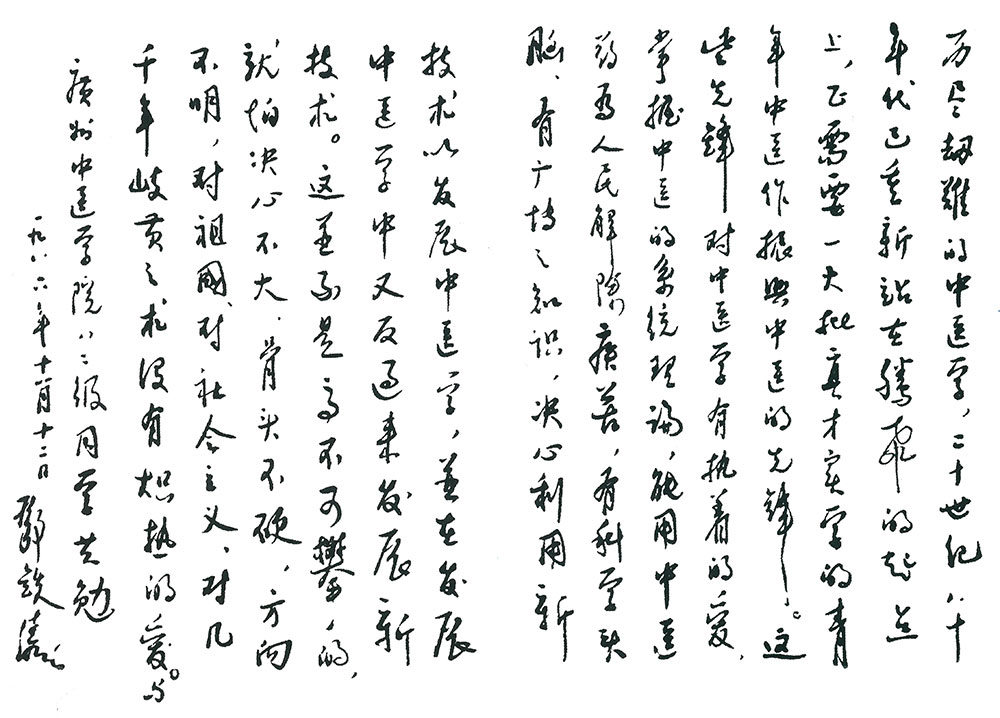 历尽劫难的中医学，二十世纪八十
年代已重新站在腾飞的起点
上，正需要一大批真才实学的青
年中医作振兴中医的先锋。这
些先锋对中医学有执着的爱，
掌握中医的系统理论，能用中医
药为人民解除疾苦，有科学头
脑、有广博之知识，决心利用新
技术以发展中医学，并在发展
中医学中又反过来发展新
技术。这并不是高不可攀的，
就怕决心不大，骨头不硬，方向
不明，对祖國、对社会主义、对几
千年岐黄之术没有炽热的爱。与
廣州中医学院八二级同学共勉
一九八六年十一月十二日
鄧鉄涛